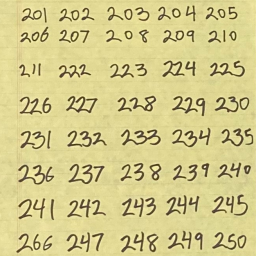 201 202 203 204 205
206 207 208 209 210
211 222 223 224 225
226 227 228 229 230
231 232 233 234 235
236 237 238 239 240
241 242 243 244 245
266 247 248 249 250